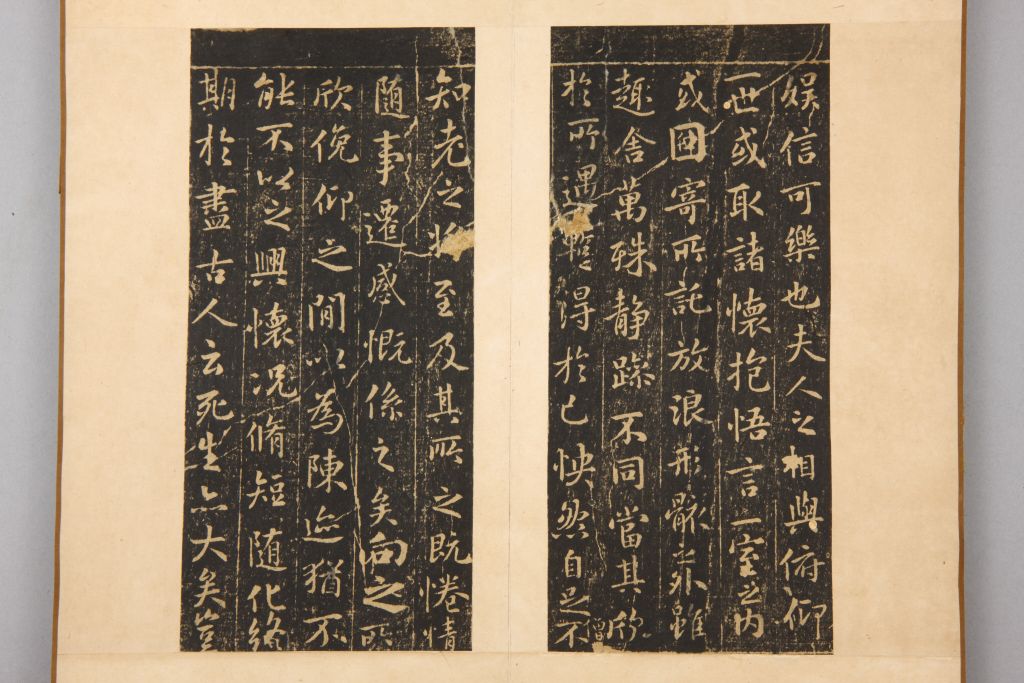 娛信可樂也夫人之相與俯仰
一世或取諸懷抱悟言一室之內
或因寄所託放浪形骸之外雖
趣舍萬殊静躁不同當其欣
於所遇蹔得於己怏然自足不
僧
知老之將至及其所之既惓情
随事遷感慨係之矣向之所
欣俛仰之閒以為陳迹猶不
能不以之興懷況脩短随化終
期於盡古人云死生亦大矣豈